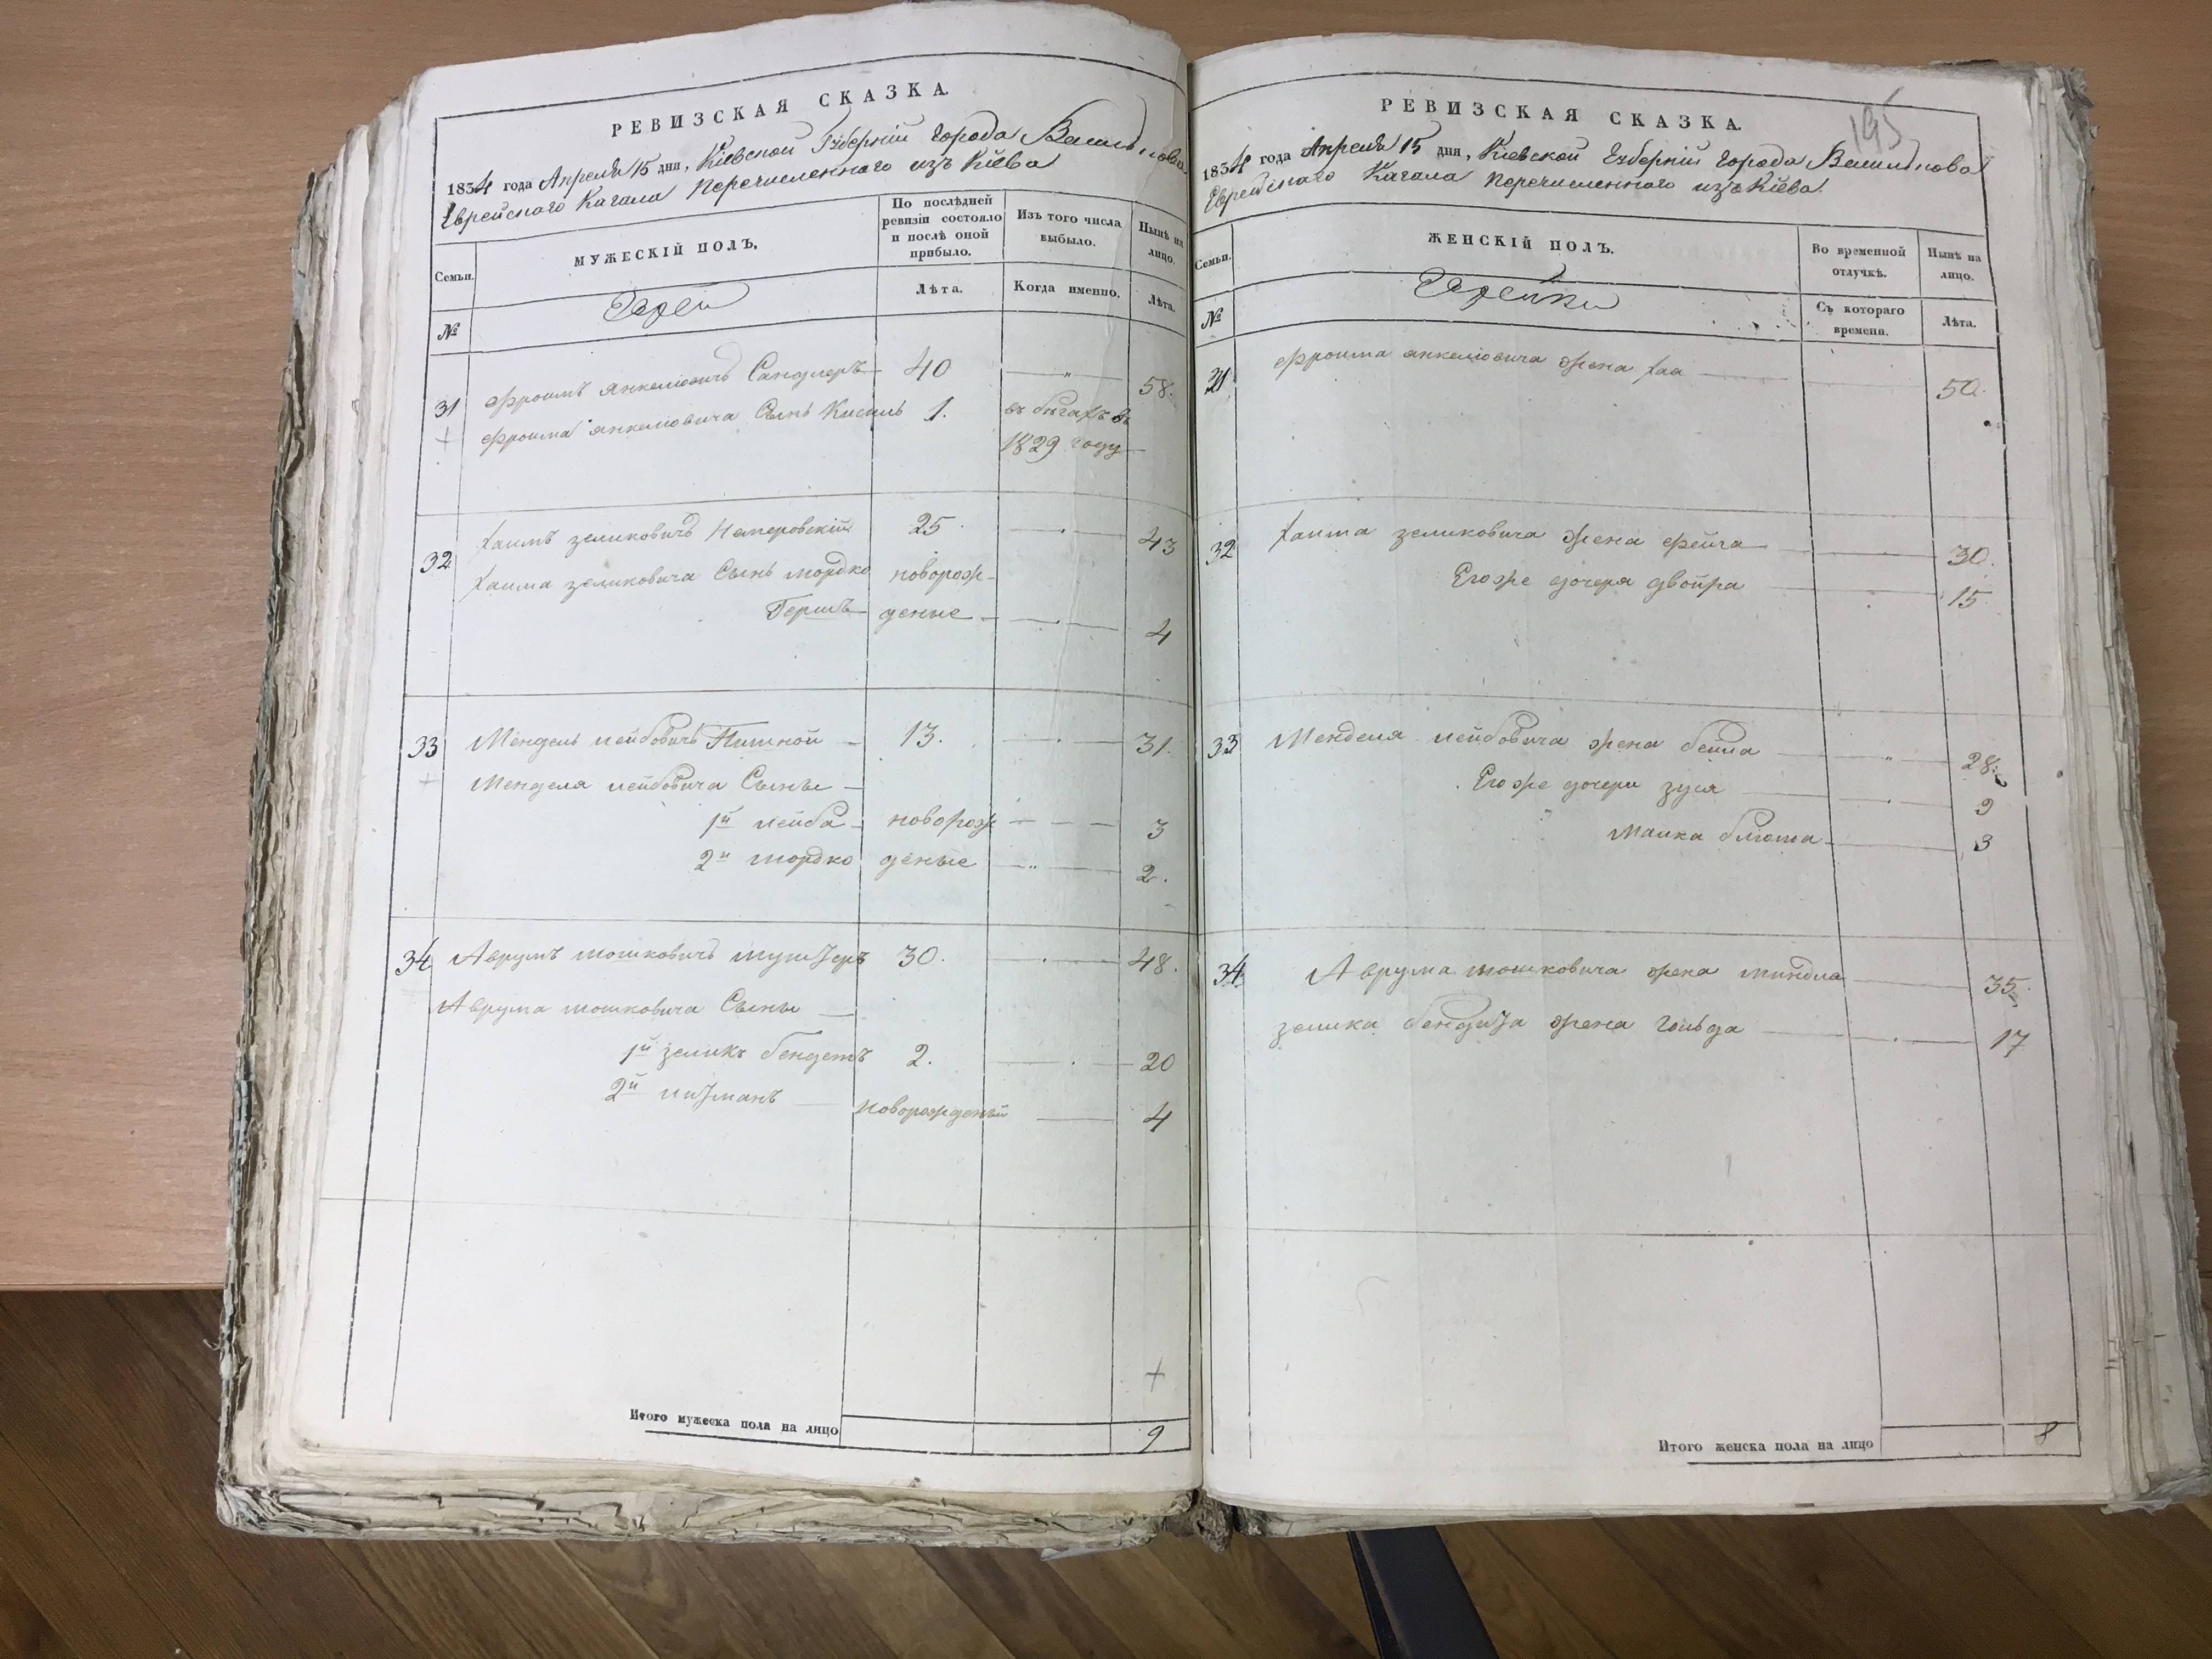 РЕВИЗСКАЯ СКАЗКА.
1834 года Апреля 15 дня, Кіевской Губерніи города Василькова
Еврейскаго Кагала перечисленнаго изъ Кіева
Семьи.
МУЖЕСКІЙ ПОЛЪ.
По послѣдней ревизіи состояло и послѣ оной прибыло.
Изъ того числа выбыло.
Нынѣ на лицо.
№
Евреи
Лѣта.
Когда именно.
Лѣта.
31 Фроимъ Янкеліовичъ Сандлеръ 40 — " — 58.
Фроима Янкеліовича Сынъ Кисиль 1. въ бѣгахъ въ
1829 году
32 Хаимъ Зеликовичъ 25 43
Хаима Зеликовича Сынъ Мордко новорож-
Гершъ деные 4
33 Мендель Лейбовичъ 13. 31.
Менделя Лейбовича Сыны
1й Лейба новорож 3
2й Мордко деные 2.
34 Аврумъ Мошковичъ 30. 48.
Аврума Мошковича Сыны
1й Зеликъ Бендетъ 2. 20
2й новорожденый 4
+
Итого мужеска пола на лицо 9
195
РЕВИЗСКАЯ СКАЗКА.
1834 года Апреля 15 дня, Кіевской Губерніи города Василькова
Еврейскаго Кагала перечисленнаго изъ Кіева
Семьи.
ЖЕНСКІЙ ПОЛЪ.
Во временной отлучкѣ.
Нынѣ на лицо.
№
Еврейки
Съ котораго времени.
Лѣта.
31 Фроима Янкеліовича жена Хаа 50.
32 Хаима Зеликовича жена Фейга 30.
Его же дочеря Двойра 15
33 Менделя Лейбовича жена Бейла " 28.
Его же дочери Зуся 9
Малка Блюма 3
34 Аврума Мошковича жена Миндля 35.
Зелика Бендита жена Гольда 17
Итого женска пола на лицо 8